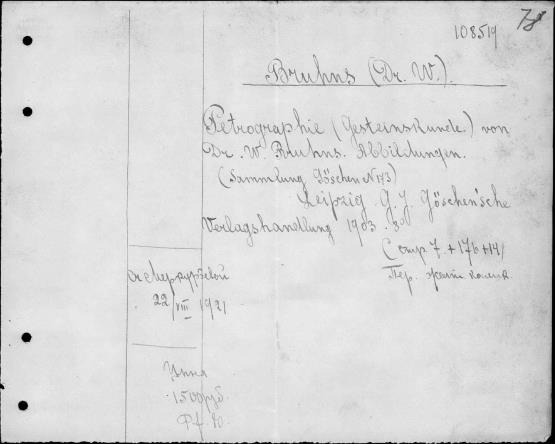 108519
Bruhns (Dr. W.).
Petrographie (Gesteinskunde.) von
Dr. W. Bruhns. Abbildungen.
(Sammlung Göschen N173)
Leipzig G. J. Göschen'sche
Verlagshandlung 1903. 8°
Стр 7. + 176 + 14
Пер.
22/VIII 1921
Цена
1500 руб.